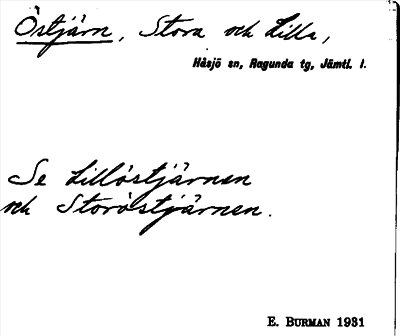 Östjärn, Stora och Lilla,
Håsjö sn, Ragunda tg, Jämtl. l.
Se Lillöstjärnen
och Storöstjärnen.
E. BURMAN 1931